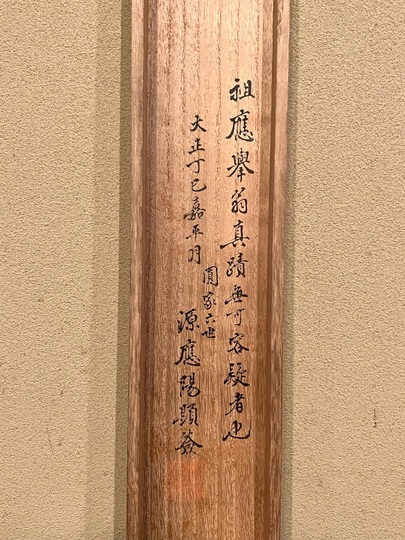 祖應擧翁真蹟無可容疑者也
大正丁巳嘉平月
圓家六世
源應陽顕簽